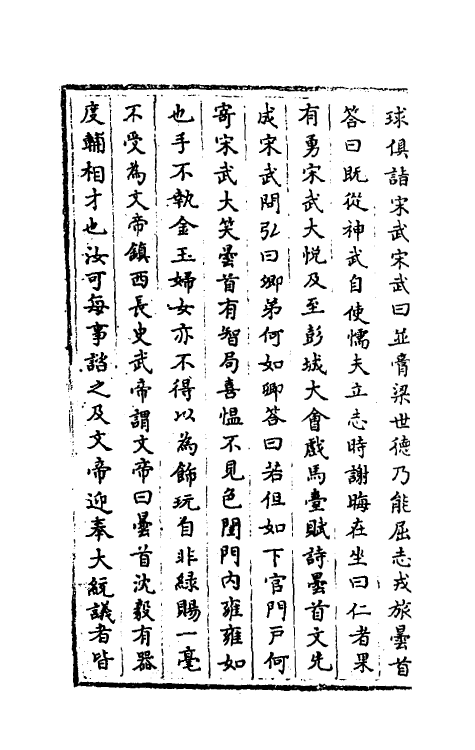 球俱詣宋武宋武曰並膏梁世德乃能屈志戎旅曇首
答曰既從神武自使懦夫立志時謝晦在坐曰仁者果
有勇宋武大悅及至彭城大會戲馬臺賦詩曇首文先
成宋武問弘曰卿弟何如卿答曰若但如下官門戶何
寄宋武大笑曇首有智局喜慍不見色閨門內雍雍如
也手不執金玉婦女亦不得以為飾玩自非緑賜一毫
不受為文帝鎮西長史武帝謂文帝曰曇首沈毅有器
度輔相才也汝可每事諮之及文帝迎奉大統議者皆